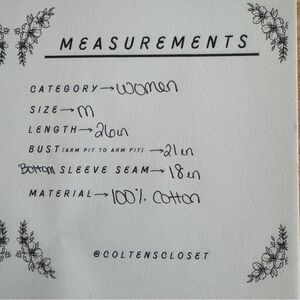 MEASUREMENTS
CATEGORY → Women
SIZE → M
LENGTH → 26in
BUST (ARM PIT TO ARM PIT) → 21in
Bottom SLEEVE SEAM → 18in
MATERIAL → 100% Cotton
@COLTENSCLOSET